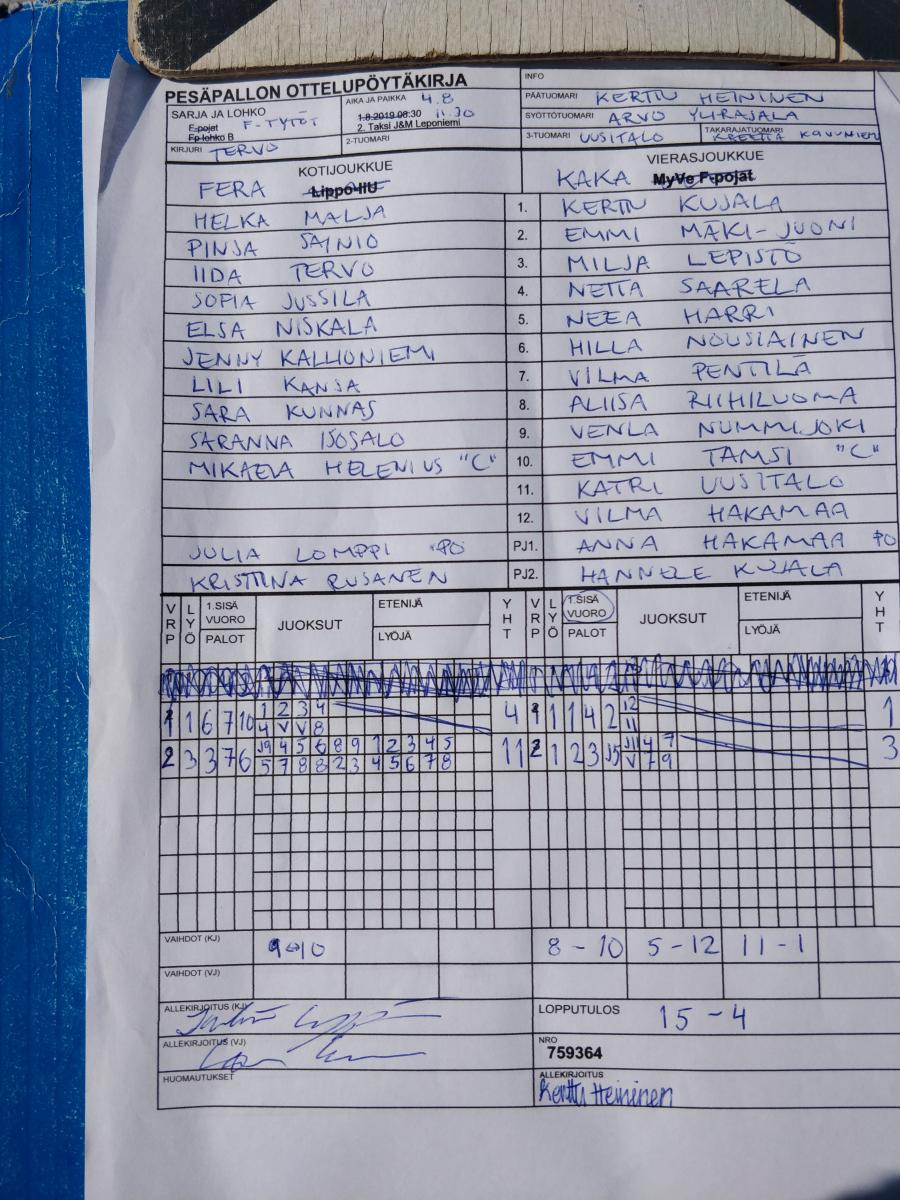 PESÄPALLON OTTELUPÖYTÄKIRJA
INFO
SARJA JA LOHKO
F-pojat F-TYTÖT
Fp lohko B
AIKA JA PAIKKA 4.8
1.8.2019 08:30 11.30
2. Taksi J&M Leponiemi
PÄÄTUOMARI KERTTU HEININEN
SYÖTTÖTUOMARI ARVO YLIRAJALA
KIRJURI TERVO
2-TUOMARI
3-TUOMARI UUSITALO
TAKARAJATUOMARI
KOTIJOUKKUE
VIERASJOUKKUE
FERA Lippo-IiU
KAKA MyVe F-pojat
HELKA MALJA 1. KERTTU KUJALA
PINJA SAINIO 2. EMMI MÄKI-JUONI
IIDA TERVO 3. MILJA LEPISTÖ
SOFIA JUSSILA 4. NETTA SAARELA
ELSA NISKALA 5. NEEA HARRI
JENNY KALLIONIEMI 6. HILLA NOUSIAINEN
LILI KANSA 7. VILMA PENTTILÄ
SARA KUNNAS 8. ALIISA RIIHILUOMA
SARANNA ISOSALO 9. VENLA NUMMIJOKI
MIKAELA HELENIUS "C" 10. EMMI TAMSI "C"
11. KATRI UUSITALO
12. VILMA HAKAMAA
JULIA LOMPPI PO PJ1. ANNA HAKAMAA PO
KRISTIINA RUSANEN PJ2. HANNELE KUJALA
VRP LYÖ 1.SISÄ VUORO PALOT JUOKSUT ETENIJÄ LYÖJÄ YHT VRP LYÖ 1.SISÄ VUORO PALOT JUOKSUT ETENIJÄ LYÖJÄ YHT
1 1 6 7 10 1 2 3 4 4 1 1 1 4 2 12 1
4 V V 8 11
2 3 3 7 6 J9 4 5 6 8 9 1 2 3 4 5 11 2 1 2 3 J5 J11 4 7 3
5 7 8 8 2 3 4 5 6 7 8 V 7 9
VAIHDOT (KJ) 9↔10 8 - 10 5 - 12 11 - 1
VAIHDOT (VJ)
ALLEKIRJOITUS (KJ)
LOPPUTULOS 15 - 4
ALLEKIRJOITUS (VJ)
NRO
759364
HUOMAUTUKSET
ALLEKIRJOITUS
Kerttu Heininen